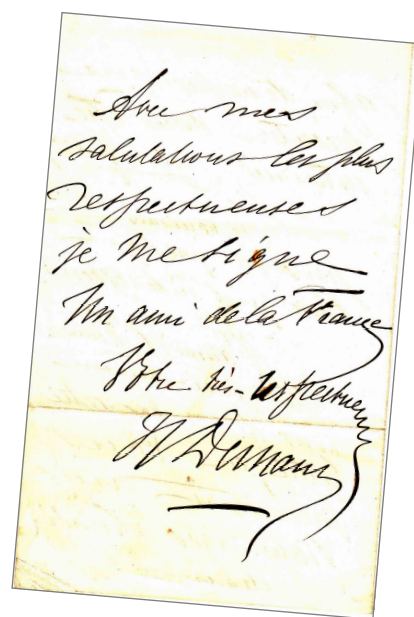 Avec mes
salutations les plus
respectueuses
je me signe
Un ami de la France
Votre très-respectueux